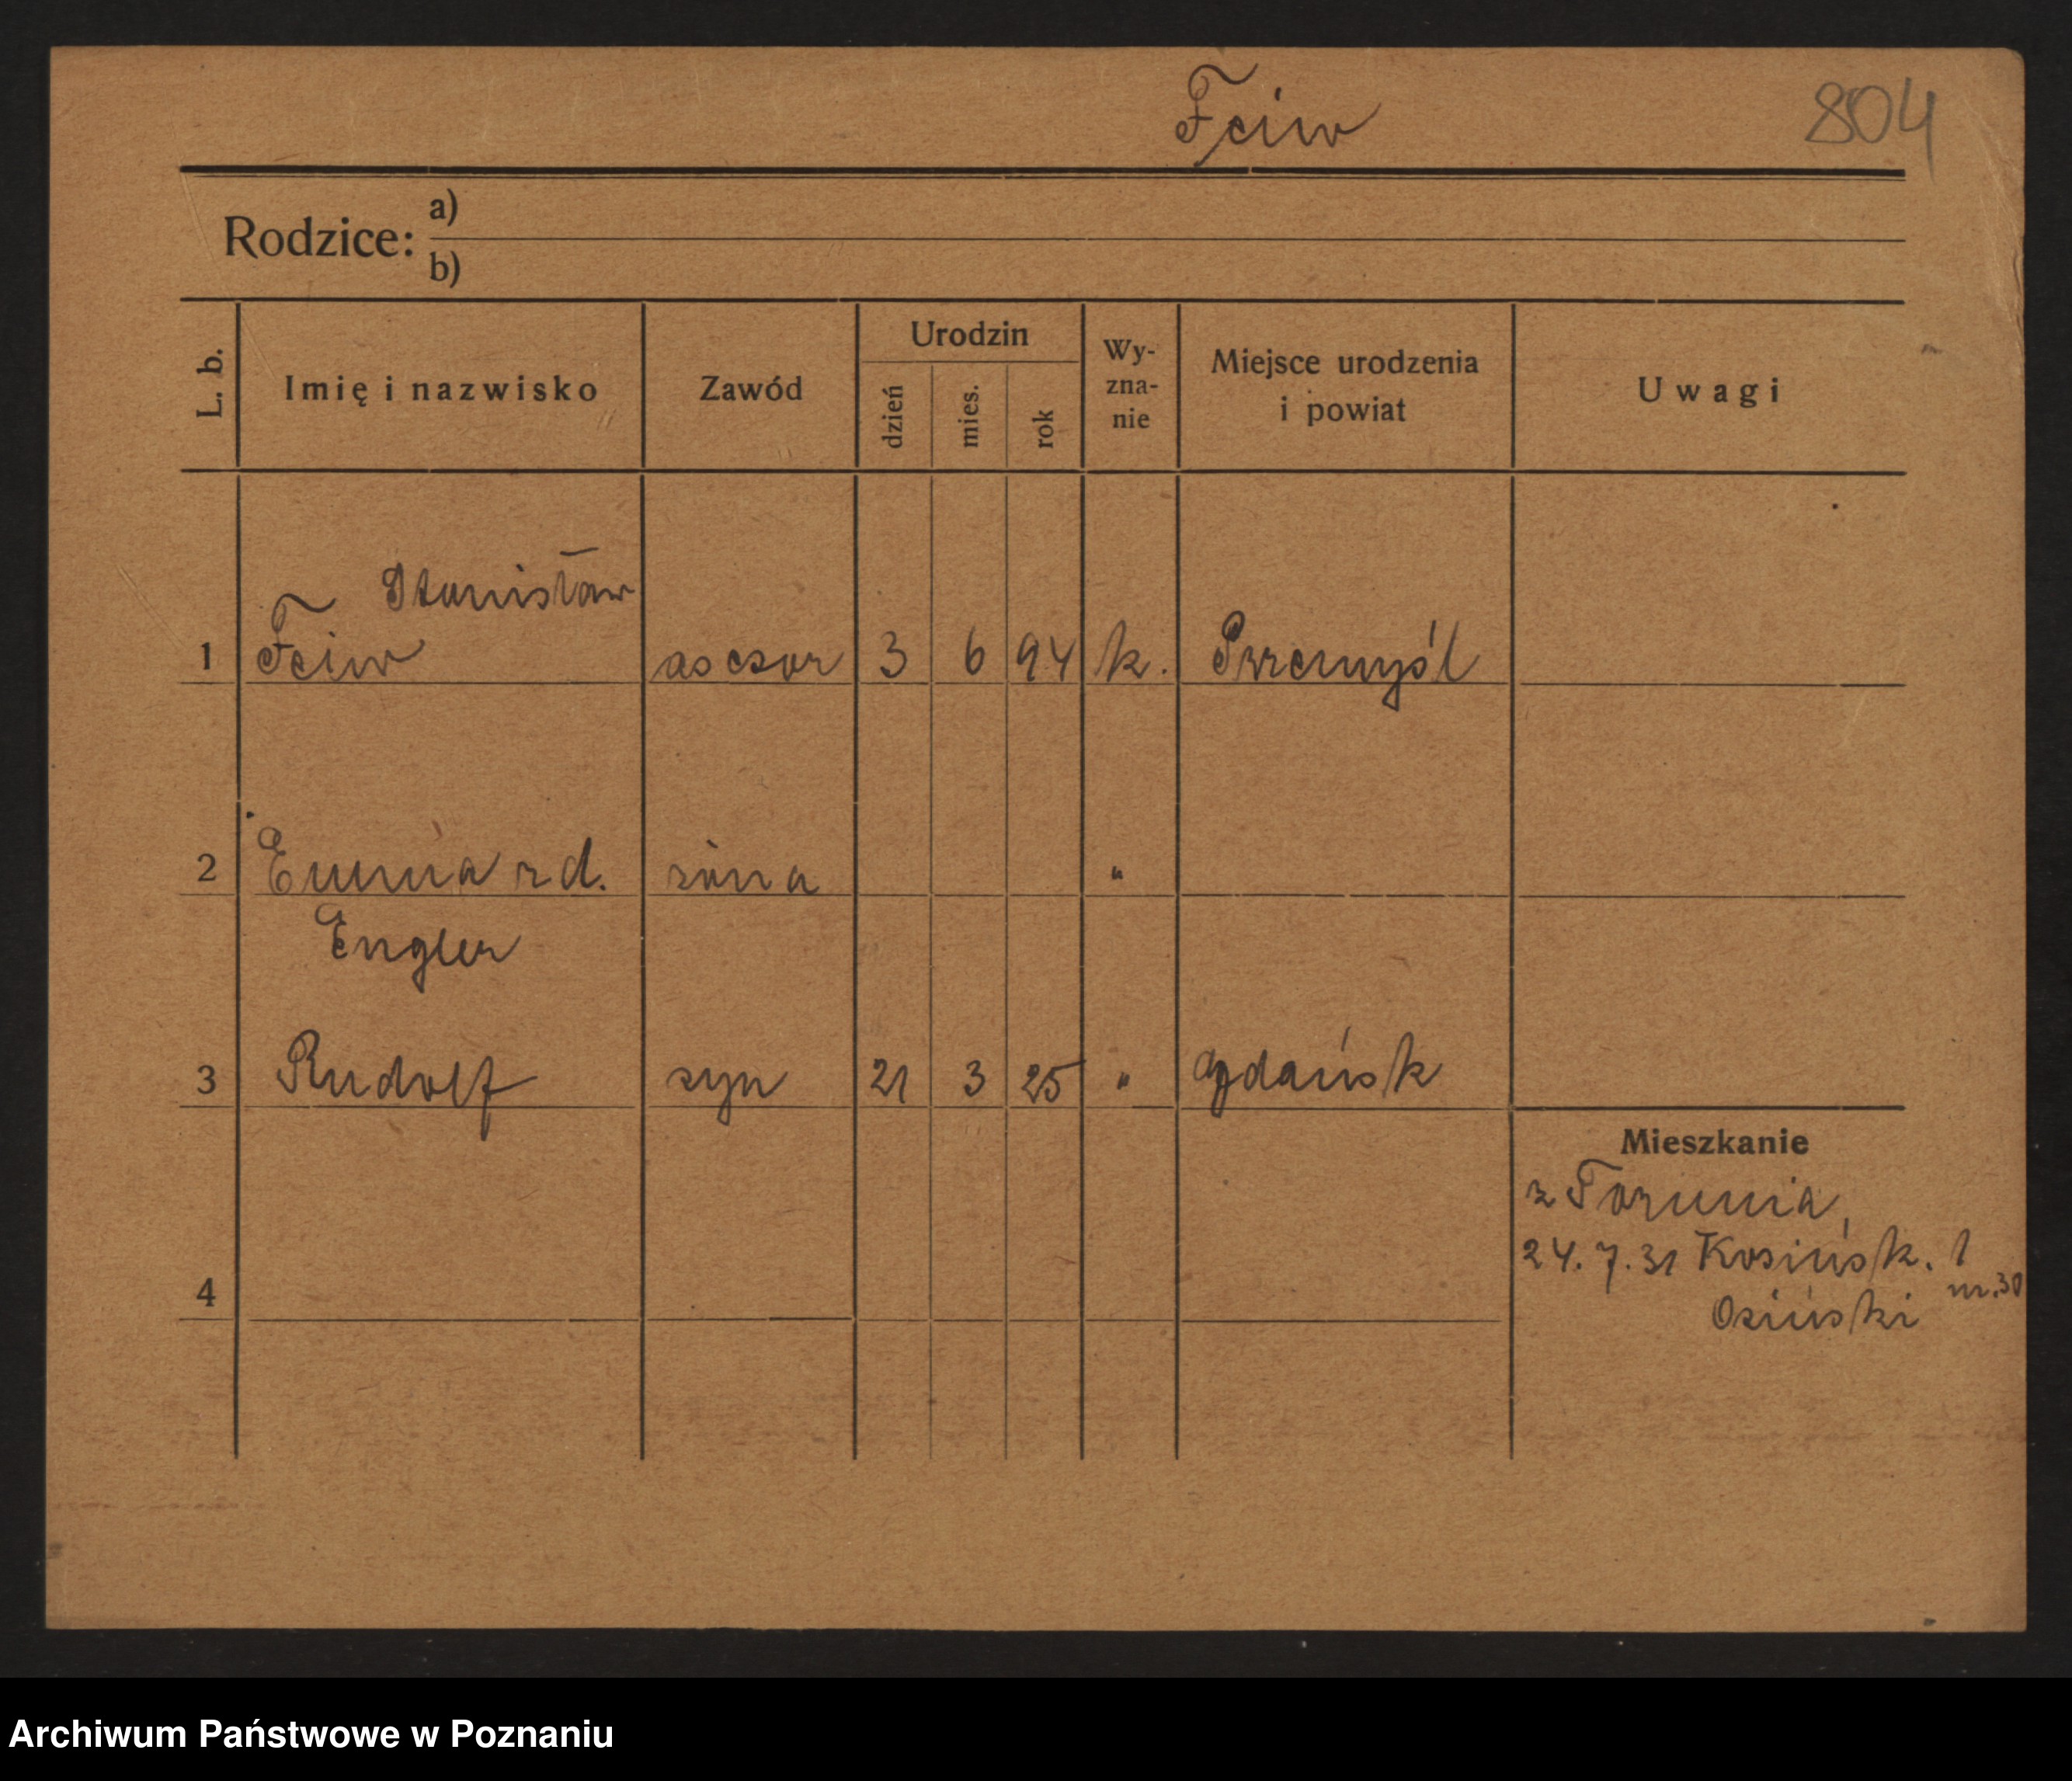 Feiw 804
Rodzice: a)
b)
L. b. Imię i nazwisko Zawód Urodzin dzień mies. rok Wy-zna-nie Miejsce urodzenia i powiat Uwagi
Stanisław
1 Feiw asesor 3 6 94 k. Przemyśl
2 Emma zd. żona "
Engler
3 Rudolf syn 21 3 25 " Gdańsk
Mieszkanie
z Torunia,
24. 7. 31 Kosińsk. 1
nr. 30
4
Osiński
Archiwum Państwowe w Poznaniu